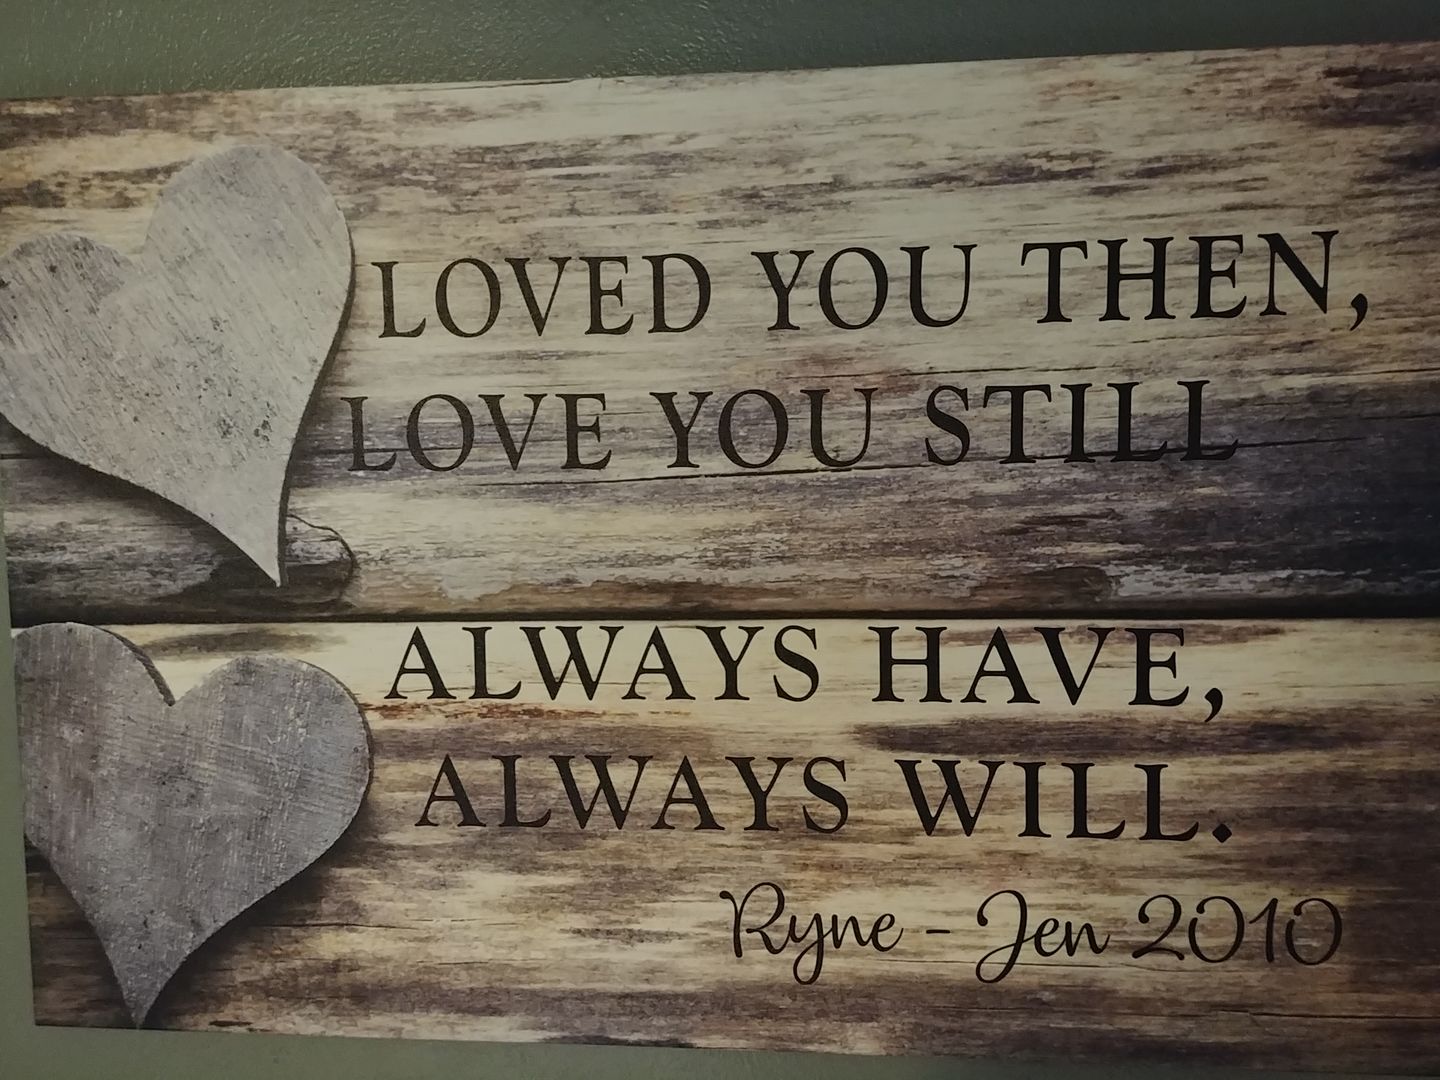 LOVED YOU THEN,
LOVE YOU STILL
ALWAYS HAVE,
ALWAYS WILL.
Ryne - Jen 2010